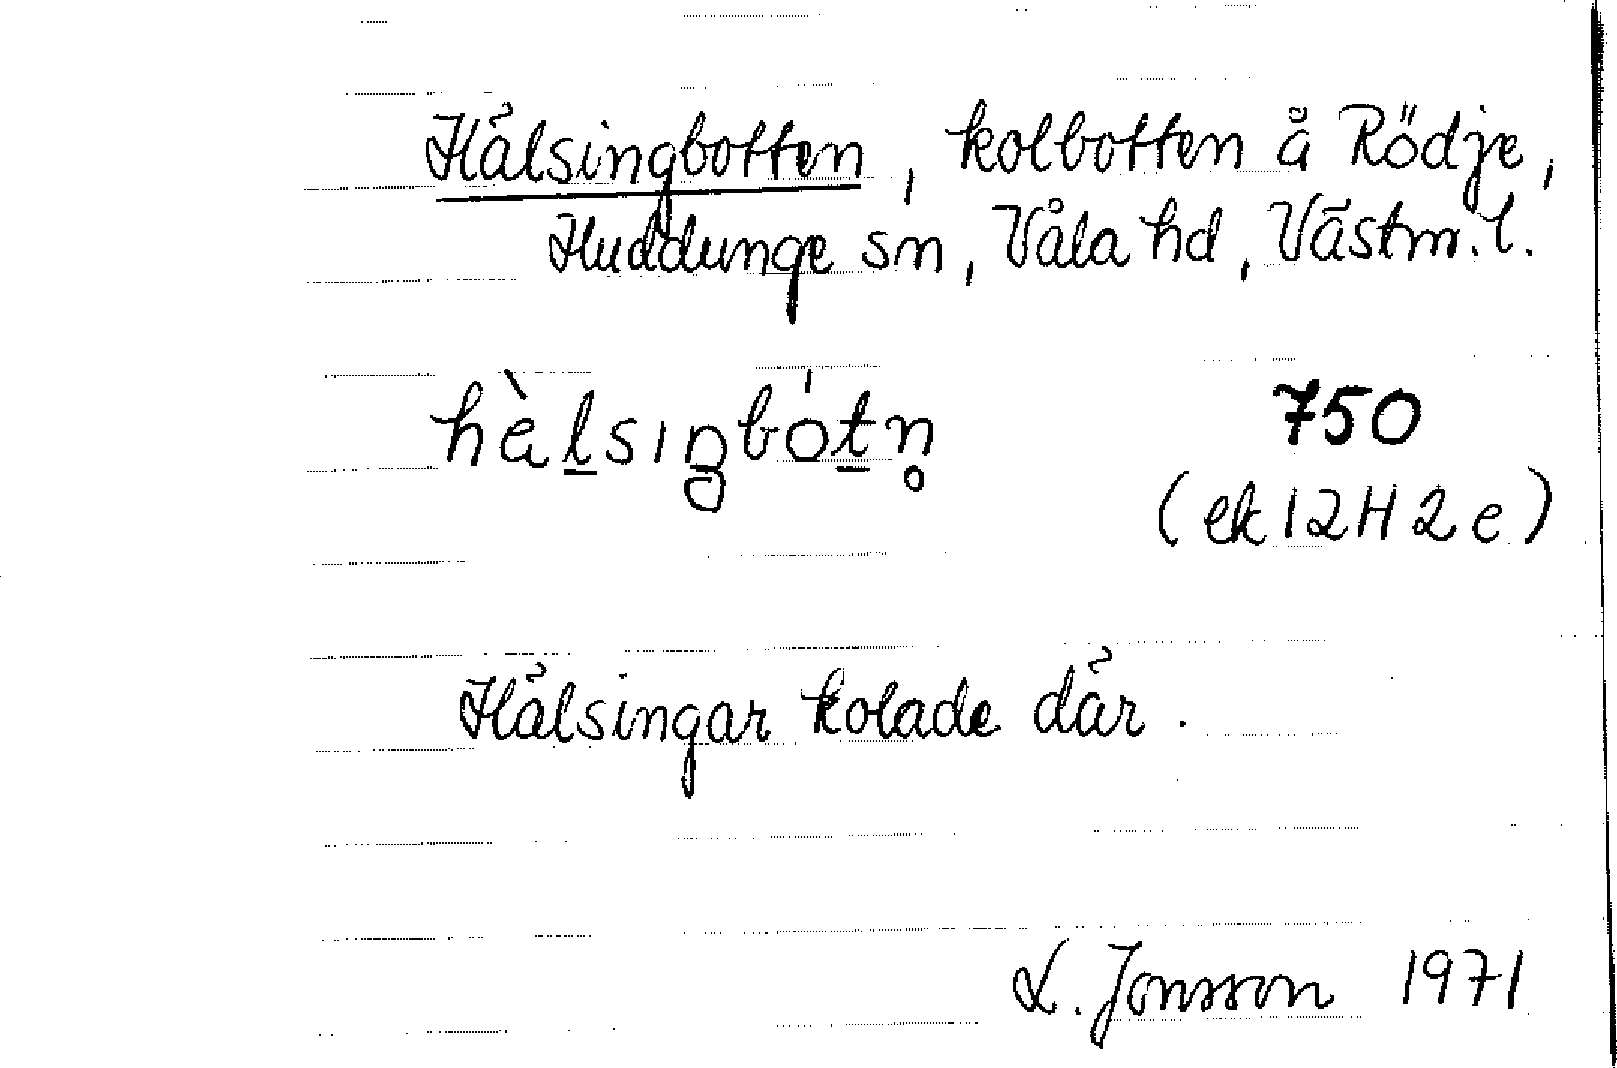 Hälsingbotten, kolbotten å Rödje,
Huddunge sn, Våla hd, Västm. l.
hàl̲sıŋbót̲n̥ 750
(ek 12H2e)
Hälsingar kolade där.
L. Jonsson 1971